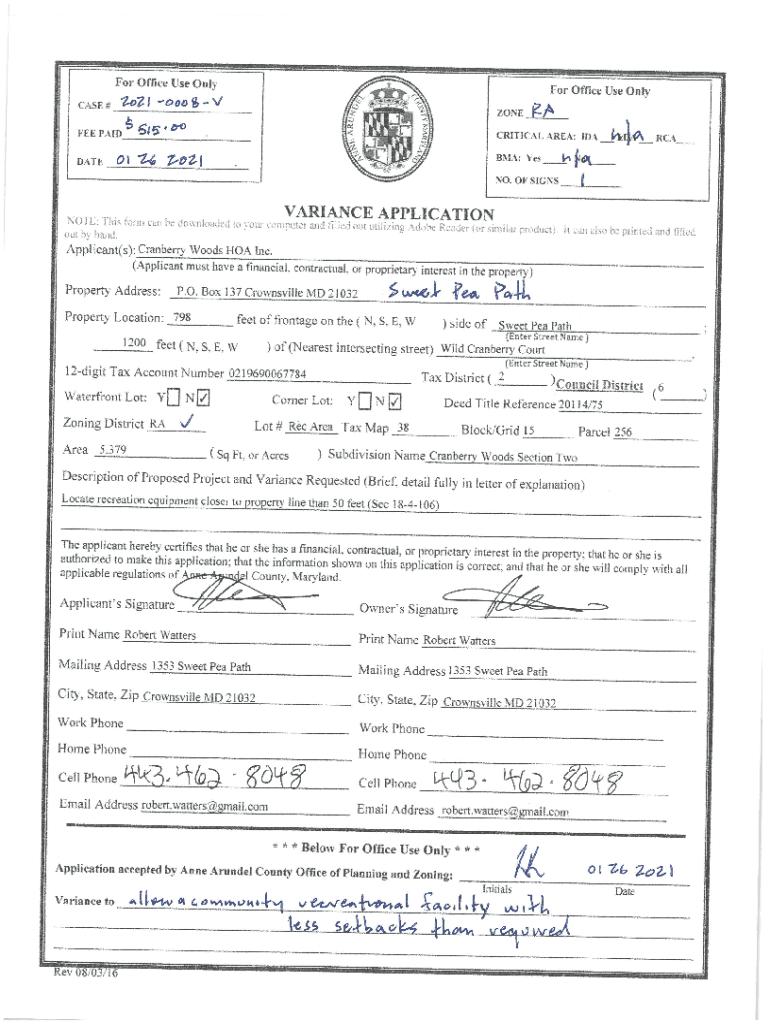 For Office Use Only
CASE # 2021-0008-V
FEE PAID $515.00
DATE 01 26 2021
ANNE ARUNDEL COUNTY MARYLAND
For Office Use Only
ZONE RA
CRITICAL AREA: IDA n/a RCA
BMA: Yes n/a
NO. OF SIGNS 1
VARIANCE APPLICATION
NOTE: This form can be downloaded to your computer and filled out utilizing Adobe Reader (or similar product). It can also be printed and filled
out by hand.
Applicant(s): Cranberry Woods HOA Inc.
(Applicant must have a financial, contractual, or proprietary interest in the property)
Property Address: P.O. Box 137 Crownsville MD 21032 Sweet Pea Path
Property Location: 798 feet of frontage on the ( N, S, E, W ) side of Sweet Pea Path ;
(Enter Street Name )
1200 feet ( N, S, E, W ) of (Nearest intersecting street) Wild Cranberry Court .
(Enter Street Name )
12-digit Tax Account Number 0219690067784 Tax District ( 2 ) Council District ( 6 )
Waterfront Lot: Y N ✓ Corner Lot: Y N ✓ Deed Title Reference 20114/75
Zoning District RA ✓ Lot # Rec Area Tax Map 38 Block/Grid 15 Parcel 256
Area 5.379 ( Sq Ft, or Acres ) Subdivision Name Cranberry Woods Section Two
Description of Proposed Project and Variance Requested (Brief, detail fully in letter of explanation)
Locate recreation equipment closer to property line than 50 feet (Sec 18-4-106)
The applicant hereby certifies that he or she has a financial, contractual, or proprietary interest in the property; that he or she is
authorized to make this application; that the information shown on this application is correct; and that he or she will comply with all
applicable regulations of Anne Arundel County, Maryland.
Applicant's Signature Owner's Signature
Print Name Robert Watters Print Name Robert Watters
Mailing Address 1353 Sweet Pea Path Mailing Address 1353 Sweet Pea Path
City, State, Zip Crownsville MD 21032 City, State, Zip Crownsville MD 21032
Work Phone Work Phone
Home Phone Home Phone
Cell Phone 443.462.8048 Cell Phone 443.462.8048
Email Address robert.watters@gmail.com Email Address robert.watters@gmail.com
* * * Below For Office Use Only * * *
Application accepted by Anne Arundel County Office of Planning and Zoning: 01 26 2021
Initials Date
Variance to allow a community recreational facility with
less setbacks than required
Rev 08/03/16